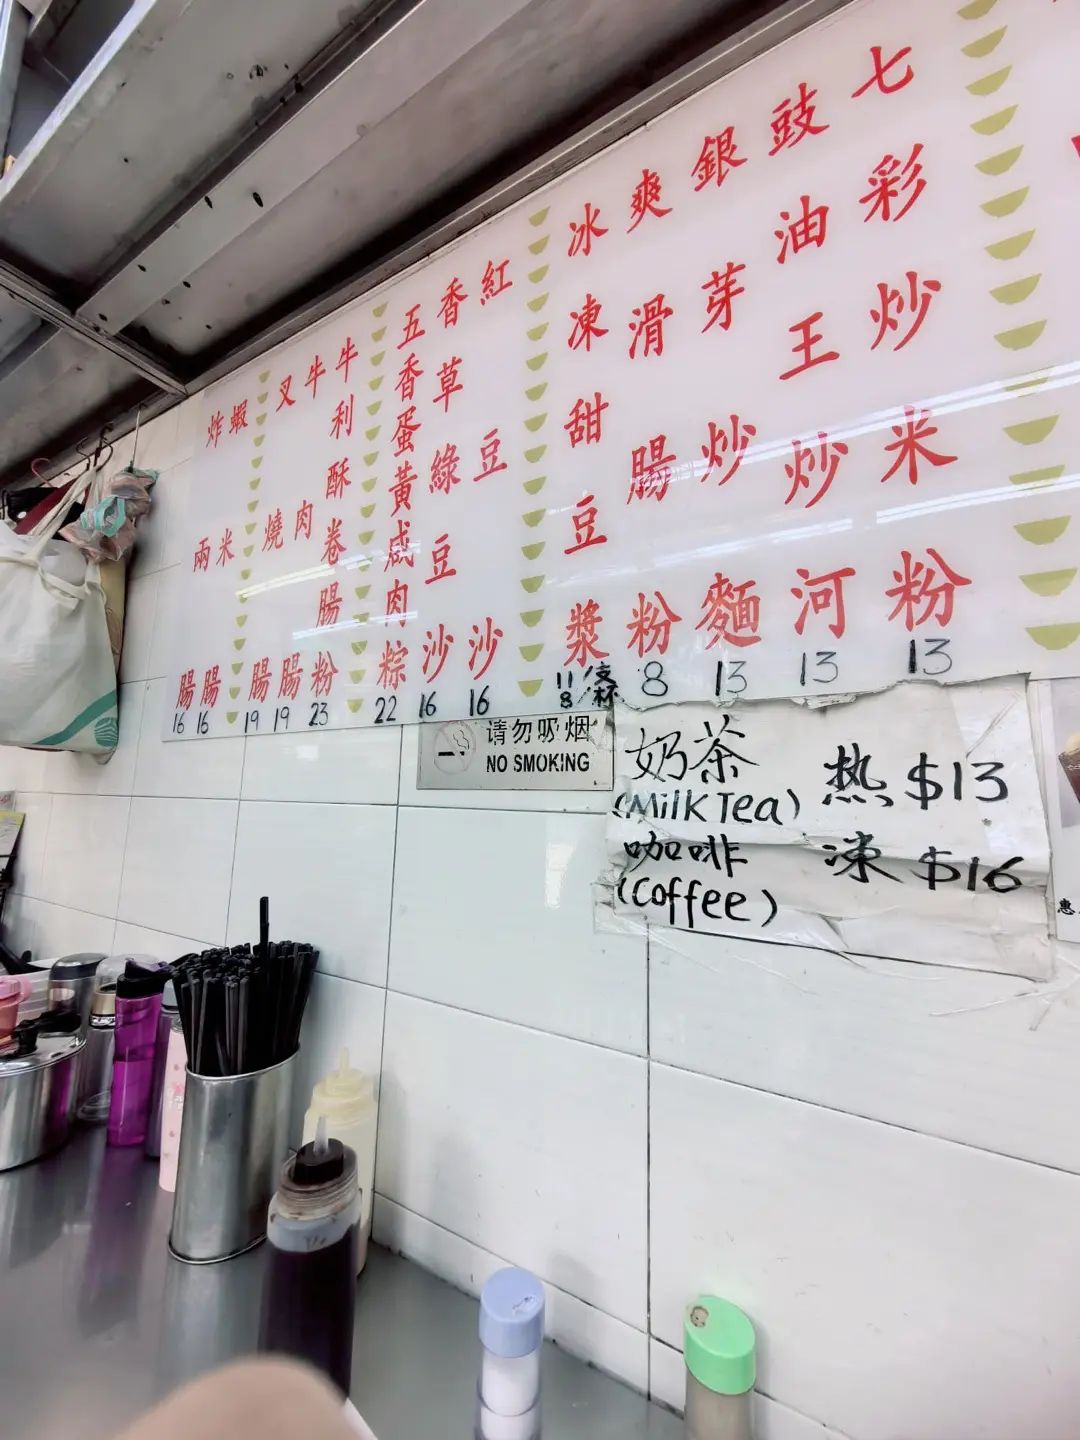 七彩炒米粉
13
豉油王炒河
13
銀芽炒麵
13
爽滑腸粉
8
冰凍甜豆漿
11/支
8/杯
紅豆沙
16
香草綠豆沙
16
五香蛋黃咸肉粽
22
牛利酥卷腸粉
23
牛肉腸
19
叉燒腸
19
蝦米腸
16
炸兩腸
16
请勿吸烟
NO SMOKING
奶茶 热 $13
(Milk Tea)
咖啡 凍 $16
(Coffee)